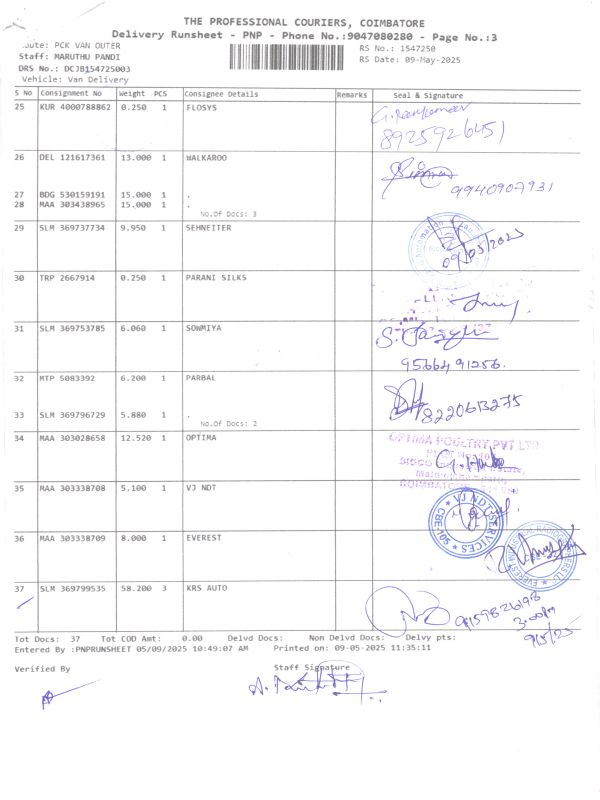 THE PROFESSIONAL COURIERS, COIMBATORE
Delivery Runsheet - PNP - Phone No.:9047080280 - Page No.:3
oute: PCK VAN OUTER
RS No.: 1547250
Staff: MARUTHU PANDI
RS Date: 09-May-2025
DRS No.: DCJB154725003
Vehicle: Van Delivery
S No Consignment No Weight PCS Consignee Details Remarks Seal & Signature
25 KUR 4000788862 0.250 1 FLOSYS
8925926451
26 DEL 121617361 13.000 1 WALKAROO
9940907931
27 BDG 530159191 15.000 1 .
28 MAA 303438965 15.000 1 .
No.Of Docs: 3
29 SLM 369737734 9.950 1 SEHNEITER
09/05/2025
30 TRP 2667914 0.250 1 PARANI SILKS
31 SLM 369753785 6.060 1 SOWMIYA
9566491256.
32 MTP 5083392 6.200 1 PARBAL
8220613275
33 SLM 369796729 5.880 1 .
No.Of Docs: 2
34 MAA 303028658 12.520 1 OPTIMA
OPTIMA POULTRY PVT LTD
35 MAA 303338708 5.100 1 VJ NDT
VJ NDT SERVICES CBE-105
36 MAA 303338709 8.000 1 EVEREST
37 SLM 369799535 58.200 3 KRS AUTO
9159826198
3:00pm
9/5/25
Tot Docs: 37 Tot COD Amt: 0.00 Delvd Docs: Non Delvd Docs: Delvy pts:
Entered By :PNPRUNSHEET 05/09/2025 10:49:07 AM Printed on: 09-05-2025 11:35:11
Verified By Staff Signature